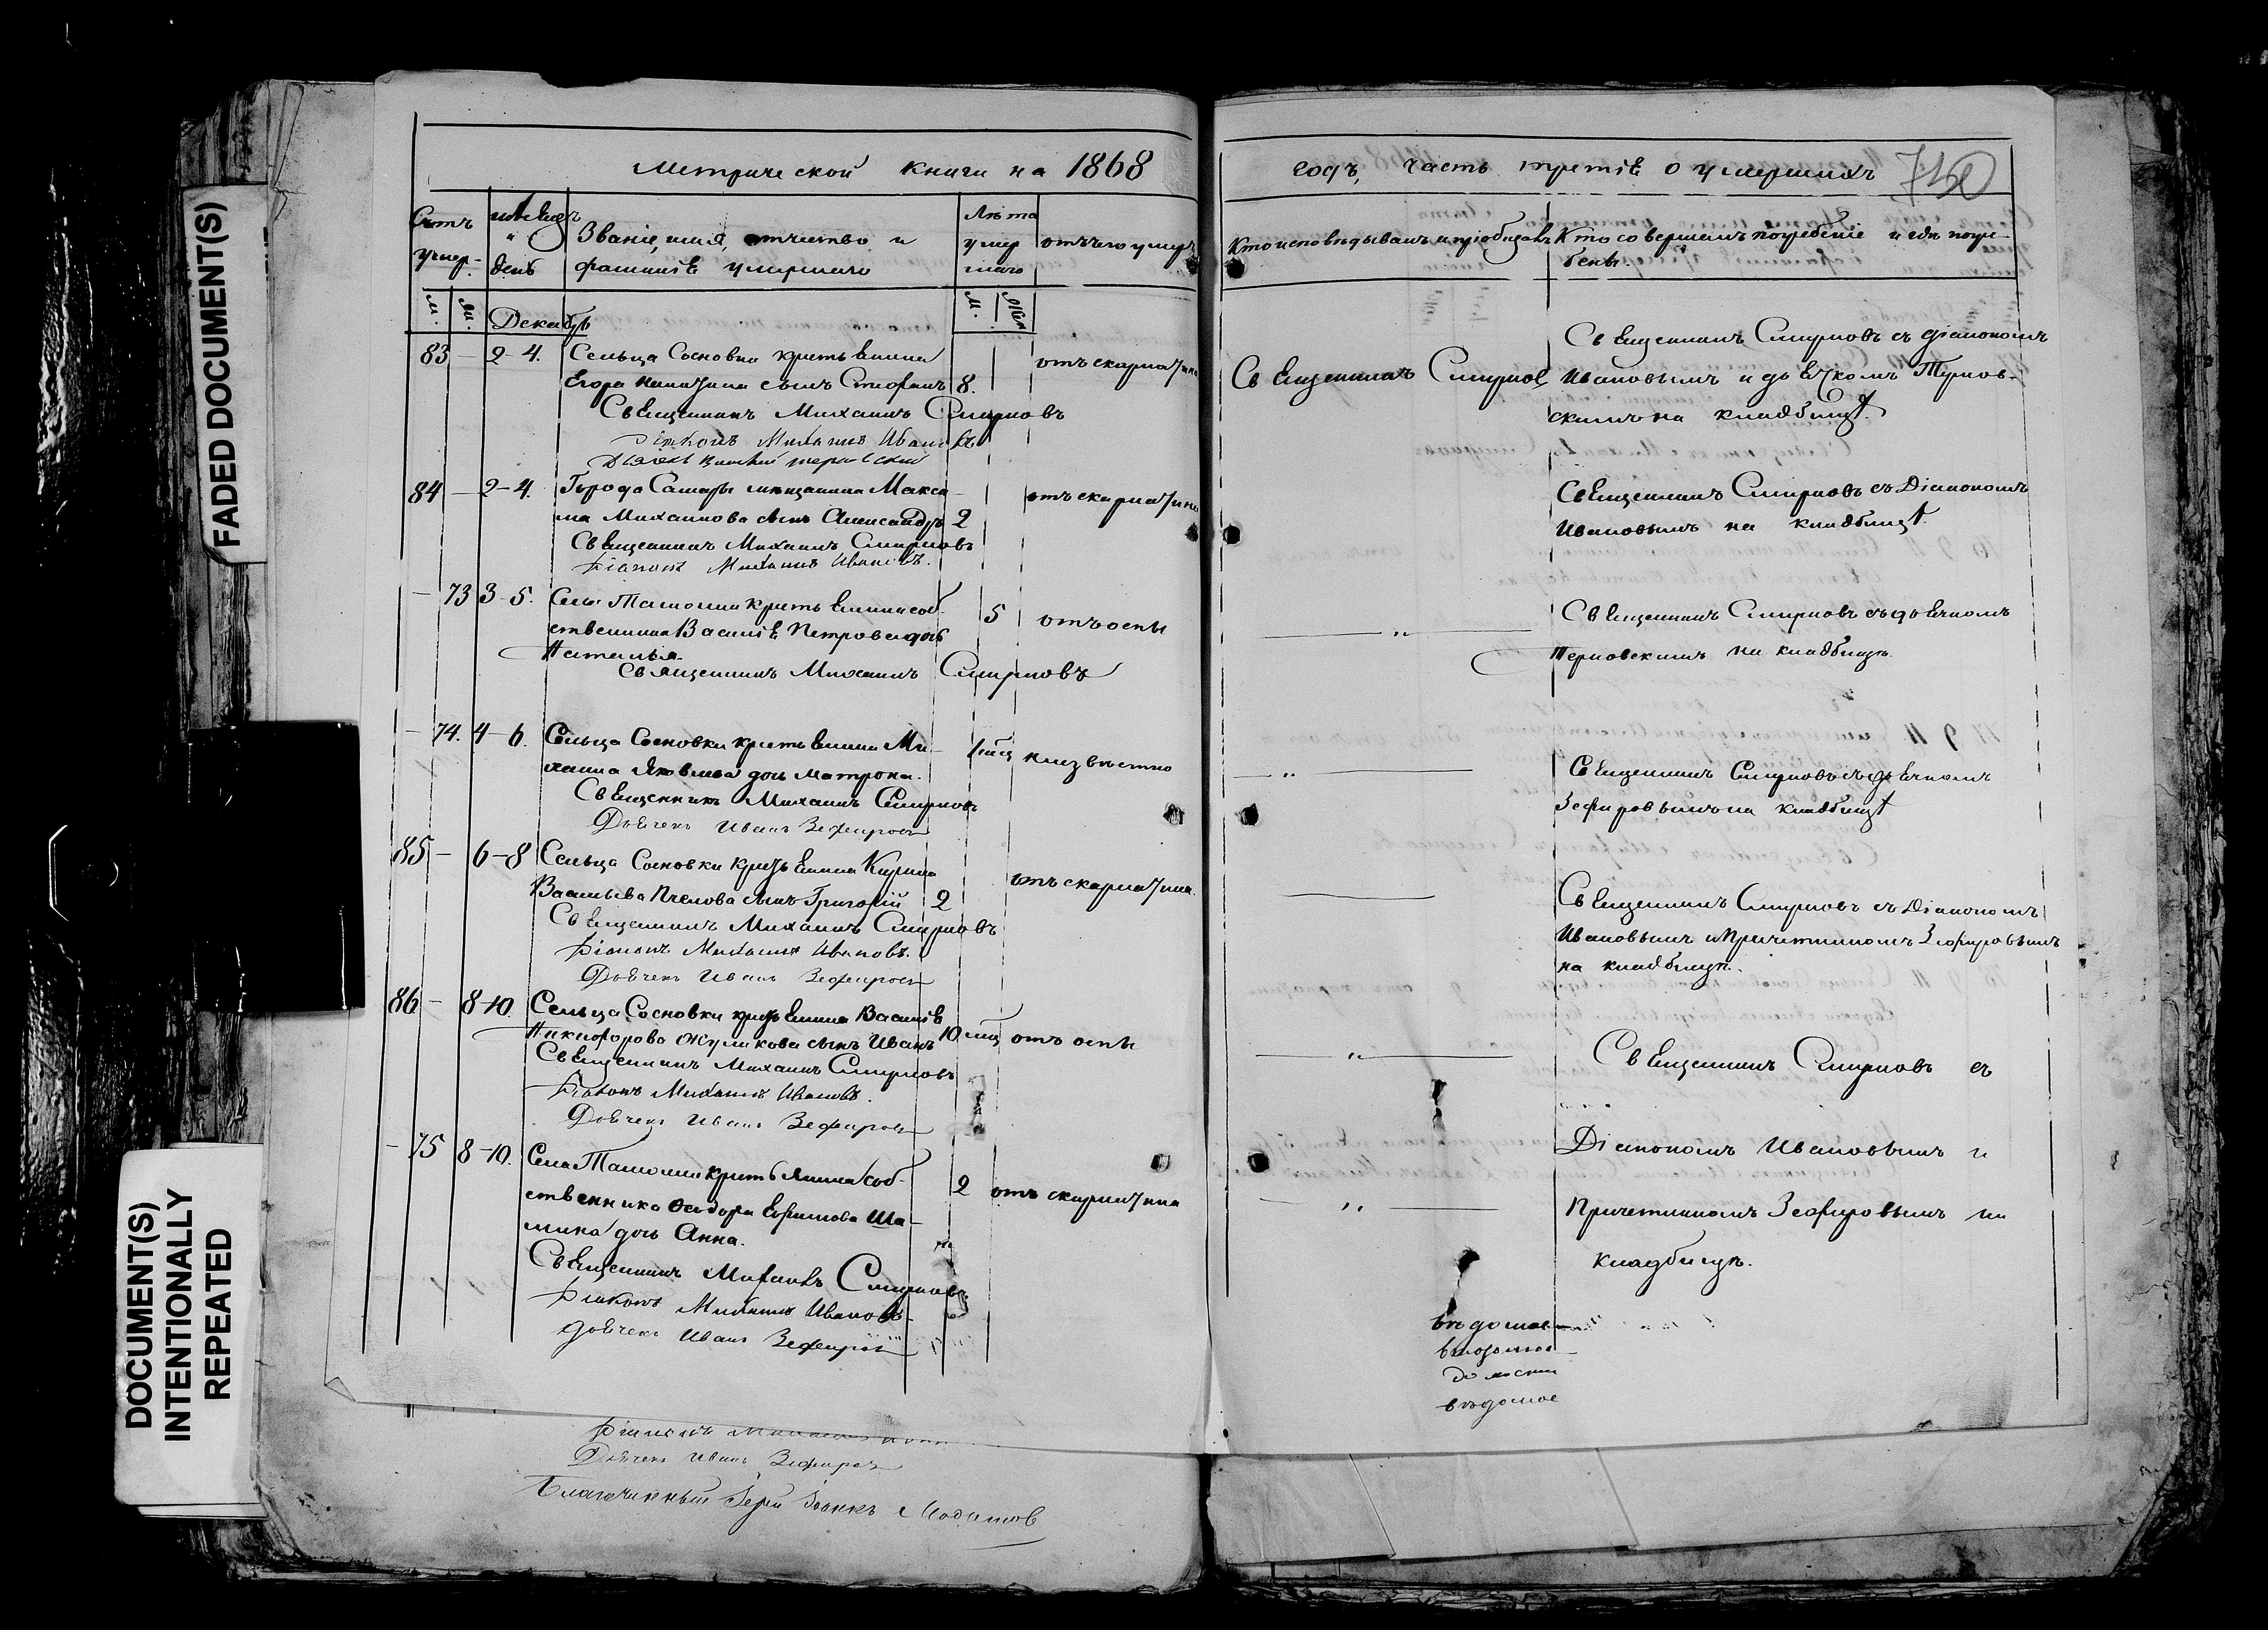 FADED DOCUMENT(S)
DOCUMENT(S)
INTENTIONALLY
REPEATED
Метрической книги на 1868
годъ, часть третія о умершихъ
Счетъ умер.
мѣсяцъ и день
Званіе, имя, отчество и
фамилія умершаго
Лѣта
умер
шаго
отъ чего умеръ
Кто исповѣдывалъ и пріобщалъ
Кто совершалъ погребеніе и гдѣ погре-
бены.
м. ж.
Декабрь
м. жен
83 — 2-4. Сельца Сосновки крестьянина
Егора сынъ Стефанъ 8. отъ скарлатины
Священникъ Михаилъ Смирновъ
Діаконъ Михаилъ Ивановъ
Священникъ Смирновъ
Священникъ Смирновъ съ діакономъ
Ивановымъ и дьячкомъ Тернов-
скимъ на кладбищѣ.
84 — 2-4. Города Самары мещанина Макси-
ма Михаилова сынъ Александръ 2 отъ скарлатины
Священникъ Михаилъ Смирновъ
Діаконъ Михаилъ Ивановъ.
Священникъ Смирновъ съ Діакономъ
Ивановымъ на кладбищѣ.
— 73 3-5. Села крестьянина соб-
ственника Василія Петрова дочь 5 отъ оспы
Наталья.
Священникъ Михаилъ Смирновъ
Священникъ Смирновъ съ дьячкомъ
Терновскимъ на кладбищѣ.
— 74. 4-6. Сельца Сосновки крестьянина Ми-
хаила Яковлева дочь Матрона. неизвѣстно
Священникъ Михаилъ Смирновъ
Дьячекъ Иванъ Зефировъ
Священникъ Смирновъ съ дьячкомъ
Зефировымъ на кладбищѣ
85 — 6-8 Сельца Сосновки крестьянина Кирила
Васильева Пчелова сынъ Григорій 2 отъ скарлатины.
Священникъ Михаилъ Смирновъ
Діаконъ Михаилъ Ивановъ.
Дьячекъ Иванъ Зефировъ
Священникъ Смирновъ съ Діакономъ
Ивановымъ и Причетникомъ Зефировымъ
на кладбищѣ.
86 — 8-10. Сельца Сосновки крестьянина Василія
Никифорова Жуликова сынъ Иванъ 10 мѣц отъ оспы
Священникъ Михаилъ Смирновъ
Діаконъ Михаилъ Ивановъ.
Дьячекъ Иванъ Зефировъ
Священникъ Смирновъ съ
Діакономъ Ивановымъ и
Причетникомъ Зефировымъ на
кладбищѣ.
— 75 8-10. Села крестьянина соб-
ственника Ѳеодора Ефимова Ша-
мина дочь Анна. 2 отъ скарлатины
Священникъ Михаилъ Смирновъ
Діаконъ Михаилъ Ивановъ
Дьячекъ Иванъ Зефировъ
Дьячекъ Иванъ Зефировъ
Благочинный Іерей Іоаннъ